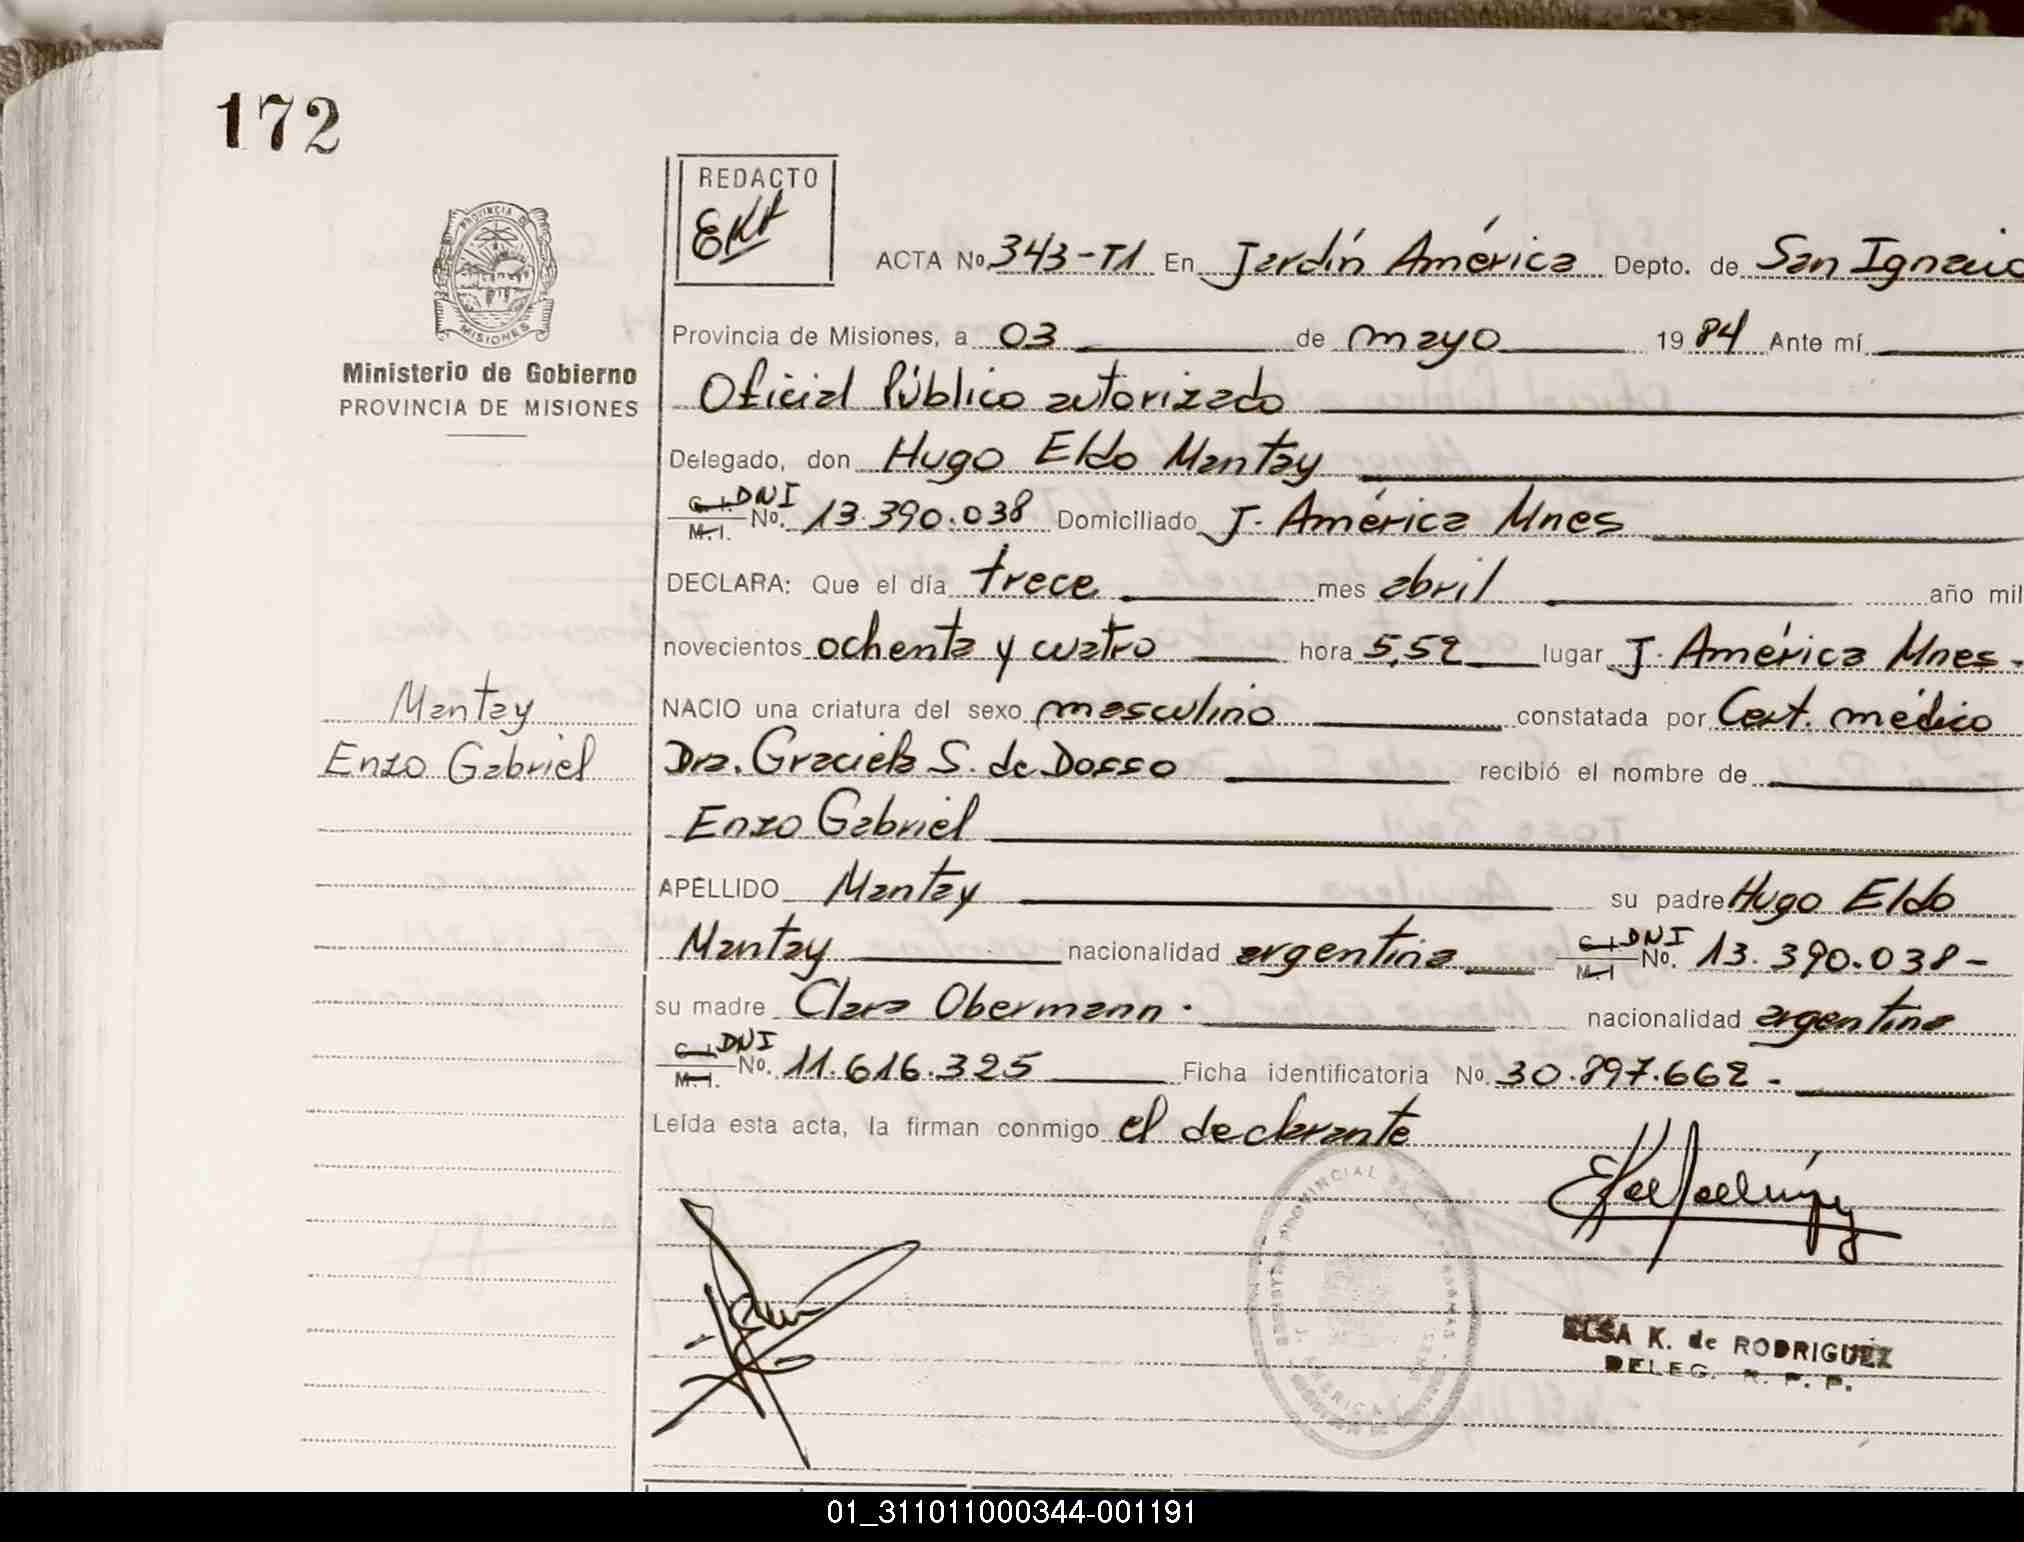 172
REDACTO
EKR
PROVINCIA DE
MISIONES
Ministerio de Gobierno
PROVINCIA DE MISIONES
ACTA No. 343-T1 En Jardín América Depto. de San Ignacio
Provincia de Misiones, a 03 de mayo 1984 Ante mí
Oficial Público autorizado
Delegado, don Hugo Eldo Mantay
C.I. DNI
M.I. No. 13.390.038 Domiciliado J. América Mnes
DECLARA: Que el día trece mes abril año mil
novecientos ochenta y cuatro hora 5,52 lugar J. América Mnes.
NACIO una criatura del sexo masculino constatada por Cert. médico
Dra. Graciela S. de Dosso recibió el nombre de
Enzo Gabriel
APELLIDO Mantay su padre Hugo Eldo
Mantay nacionalidad argentina C.I. DNI M.I No. 13.390.038-
su madre Clara Obermann. nacionalidad argentina
C.I. DNI
M.I. No. 11.616.325 Ficha identificatoria No. 30.897.662-
Leída esta acta, la firman conmigo el declarante
Mantay
Enzo Gabriel
ELSA K. de RODRIGUEZ
DELEG. R. P. P.
01_311011000344-001191